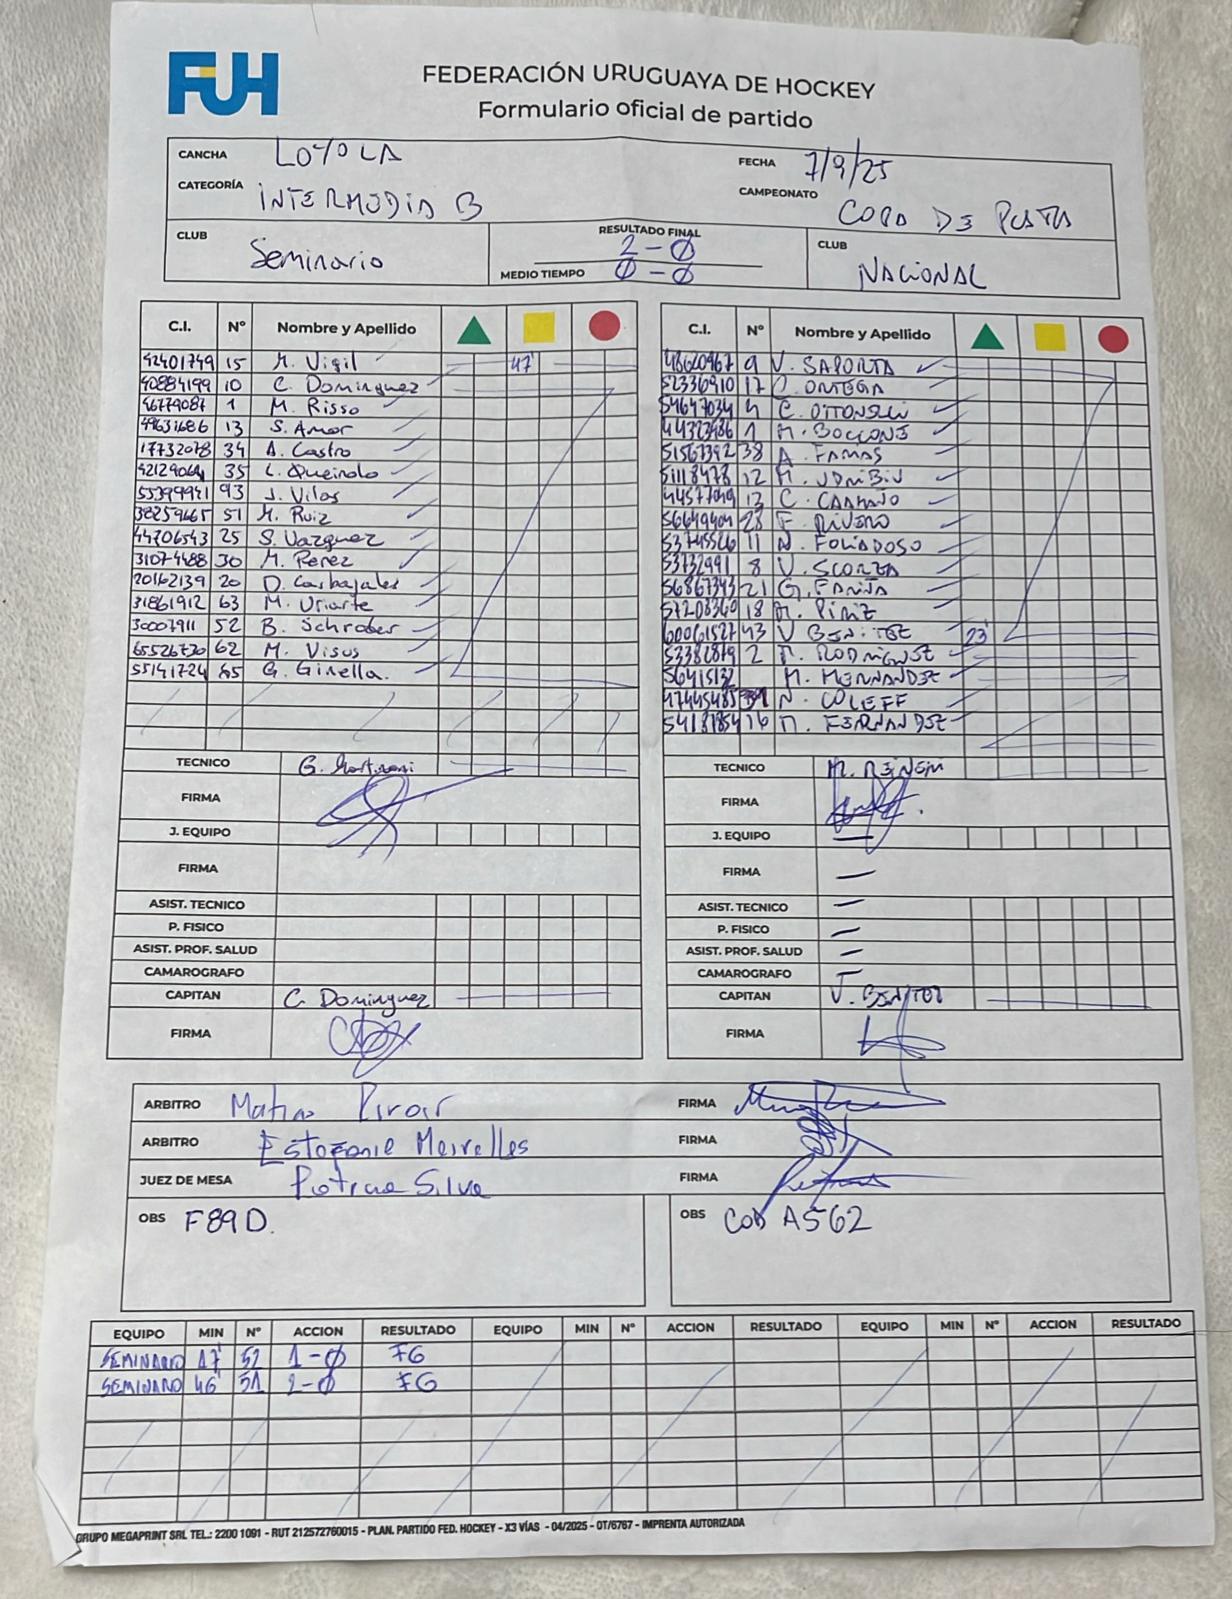 FUH
FEDERACIÓN URUGUAYA DE HOCKEY
Formulario oficial de partido
CANCHA LOYOLA FECHA 7/9/25
CATEGORÍA INTERMEDIA B CAMPEONATO COPA DE PLATA
CLUB Seminario RESULTADO FINAL 2-0 CLUB NACIONAL
MEDIO TIEMPO 0-0
C.I. Nº Nombre y Apellido
42401749 15 M. Vigil 47'
40884199 10 C. Dominguez
46779087 1 M. Risso
49631686 13 S. Amor
17732078 34 A. Castro
42129064 35 L. Queirolo
55399941 93 J. Vilas
38259665 51 M. Ruiz
44706543 25 S. Vazquez
31074488 30 M. Perez
20162139 20 D. Carbajales
31861912 63 M. Uriarte
30007911 52 B. Schrober
65526770 62 M. Visus
55141724 85 G. Ginella.
TECNICO
FIRMA
J. EQUIPO
FIRMA
ASIST. TECNICO
P. FISICO
ASIST. PROF. SALUD
CAMAROGRAFO
CAPITAN C. Dominguez
FIRMA
C.I. Nº Nombre y Apellido
48620967 9 V. SAPORTA
52336910 17 C. ORTEGA
54647034 4 C.
44323486 1 M. BOCCONE
51567392 38 A. FAMAS
51118478 12 M.
44577049 13 C. CAAMAÑO
28 F. RIVERO
11 N. FOLIADOSO
53732991 8 V. SCORZA
56867343 21 G. FARIÑA
57208360 18 M. PIRIZ
60061527 43 V BENITEZ 23'
53382879 2 M. RODRIGUEZ
56415132 M. HERNANDEZ
47445485 N. COLEFF
54181854 16 M. FERNANDEZ
TECNICO
FIRMA
J. EQUIPO —
FIRMA —
ASIST. TECNICO —
P. FISICO —
ASIST. PROF. SALUD —
CAMAROGRAFO —
CAPITAN V. BENITEZ
FIRMA
ARBITRO FIRMA
ARBITRO Estefanie Meirelles FIRMA
JUEZ DE MESA Patricia Silva FIRMA
OBS F89D.
OBS COD A562
EQUIPO MIN Nº ACCION RESULTADO EQUIPO MIN Nº ACCION RESULTADO EQUIPO MIN Nº ACCION RESULTADO
SEMINARIO 17' 52 1-0 FG
SEMINARIO 46' 51 2-0 FG
GRUPO MEGAPRINT SRL TEL.: 2200 1091 - RUT 212572760015 - PLAN. PARTIDO FED. HOCKEY - X3 VÍAS - 04/2025 - OT/6767 - IMPRENTA AUTORIZADA